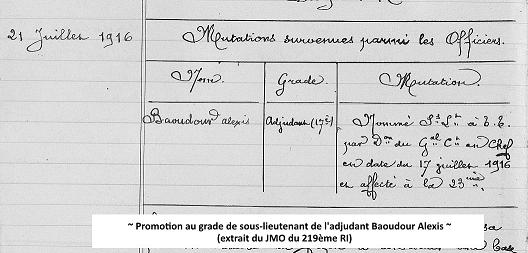 21 Juillet 1916
Mutations survenues parmi les Officiers.
Nom. Grade. Mutation
Baoudour alexis Adjudant (17e) Nommé Ss Lt à T.T.
par Don du Gal Ct en Chef
en date du 17 juillet 1916
et affecté à la 23ème.
~ Promotion au grade de sous-lieutenant de l'adjudant Baoudour Alexis ~
(extrait du JMO du 219ème RI)